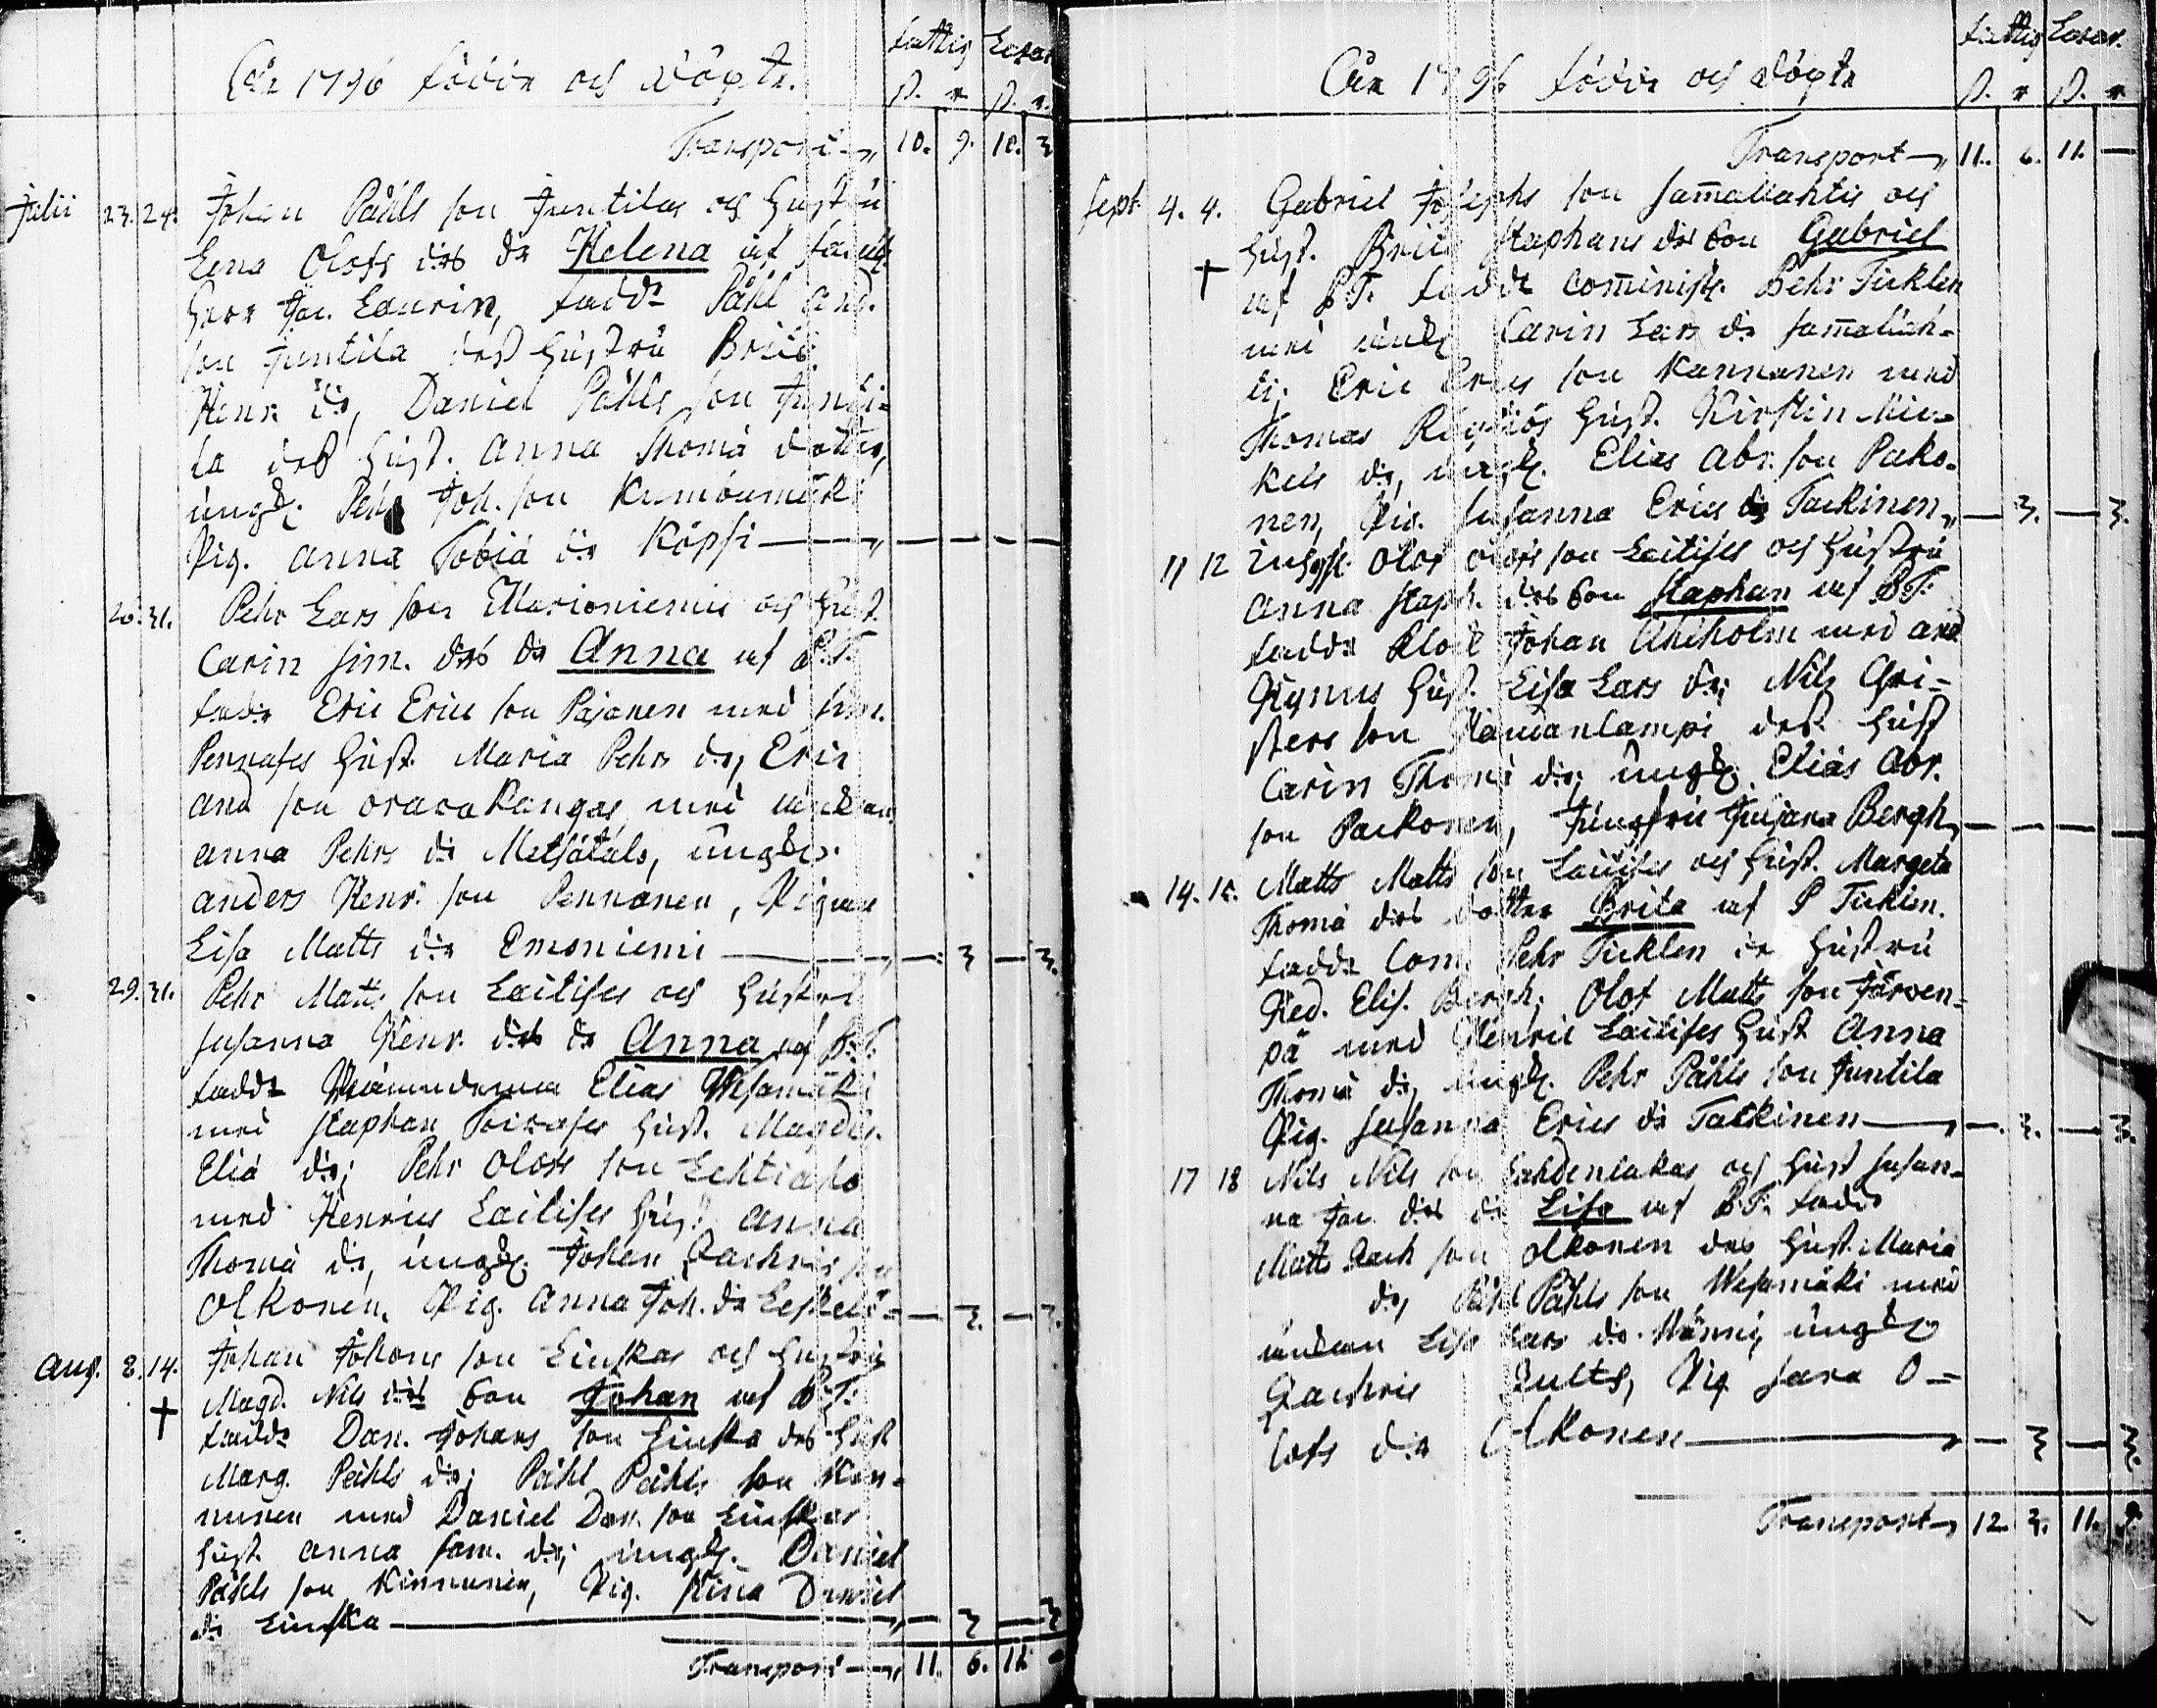 fattig Lasar.
År 1796 födde och döpte.
Transport 10. 9. 10. 3
Julii 23. 24. Johan Påhls son Juntilas och Hustru
Lena Olofs des dr Helena af
Herr Jac. Laurin, fadd. Påhl And.
son Juntila dess Hustru Brita
Henr. dr, Daniel Påhls son Junti-
la des Hust. Anna Thomä dotter,
ungk. Pehr Joh. son
Pig. Anna Tobiä dr Köpsi
26. 31. Pehr Lars son Marioniemis och Hust.
Carin Sim. des dr Anna af P.T.
fadd. Eric Erics son Pajanen med Sim.
Pennases Hust. Maria Pehrs dr, Eric
And son Oravakangas med
Anna Pehrs dr Metsätalo, ungk.
Anders Henr. son Pennanen, Pigan
Lisa Matts dr Emoniemi — 3 — 3.
29. 31. Pehr Matts son Laitises och Hustru
Susanna Henr. des dr Anna af P.T.
fadd. Nämndeman Elias Wesamäki
med Staphan Toivases Hust. Magd.
Eliä dr; Pehr Olofs son Lehtiaho
med Henrics Laitises Hust. Anna
Thomä dr, ungk. Johan Zachris son
Olkonen, Pig. Anna Joh. dr — 3. — 3.
Aug. 8. 14. Johan Johans son Linskas och Hustru
† Magd. Nils des son Johan af P.T.
fadd. Dan. Johans son Linska des Hust
Marg. Påhls dr; Påhl Påhls son Kin-
nunen med Daniel Dan. son Linskas
Hust. Anna Sam. dr; ungk. Daniel
Påhls son Kinnunen, Pig. Stina Daniel
dr Linska — 3 — 3
Transport 11. 6. 11. -
fattig Lasar.
År 1796 födde och döpte
Transport 11. 6. 11. —
Sept. 4. 4. Gabriel Josephs son Sam̄allahtis och
Hust. Brita Staphans des son Gabriel
† af P.T. fadd. Com̄inist. Pehr Ticklen
med Carin Lars dr Sam̄allah-
ti; Eric Erics son Kannanen med
Thomas Hust. Kirstin Mic-
kels dr, ungk. Elias Abr. son Pako-
nen, Pig. Susanna Erics dr Tackinen — 3. — 3.
11 12 Olof Olofs son Laitises och Hustru
Anna Staph. des son Staphan af P.T.
fadd. Klock Johan Ahlholm med And
Hust. Lisa Lars dr; Nils Chri-
sters son dess Hust
Carin Thomä dr; ungk. Elias Abr.
son Packonen, Jungfru Juliana Bergh
14. 15. Matts Matts son Laitises och Hust. Margeta
Thomä des dotter Brita af P Ticklen.
fadd. Com. Pehr Ticklen Hustru
Hed. Elis. Bergh; Olof Matts son Järven-
pä med Henric Laitises Hust Anna
Thomä dr, ungk. Pehr Påhls son Juntila
Pig. Susanna Erics dr Tackinen — 3. — 3.
17 18 Nils Nils son Lahdentakas och Hust Susan-
na Jac. des dr Lisa af P.T. fadd
Matts Zach son Olkonen des Hust. Maria
dr, Påhl Påhls son Wesamäki med
Lisa Lars dr ungk
Zachris Hults, Pig Sara O-
lofs dr Olkonen — 3 — 3.
Transport 12. 3. 11. 9.